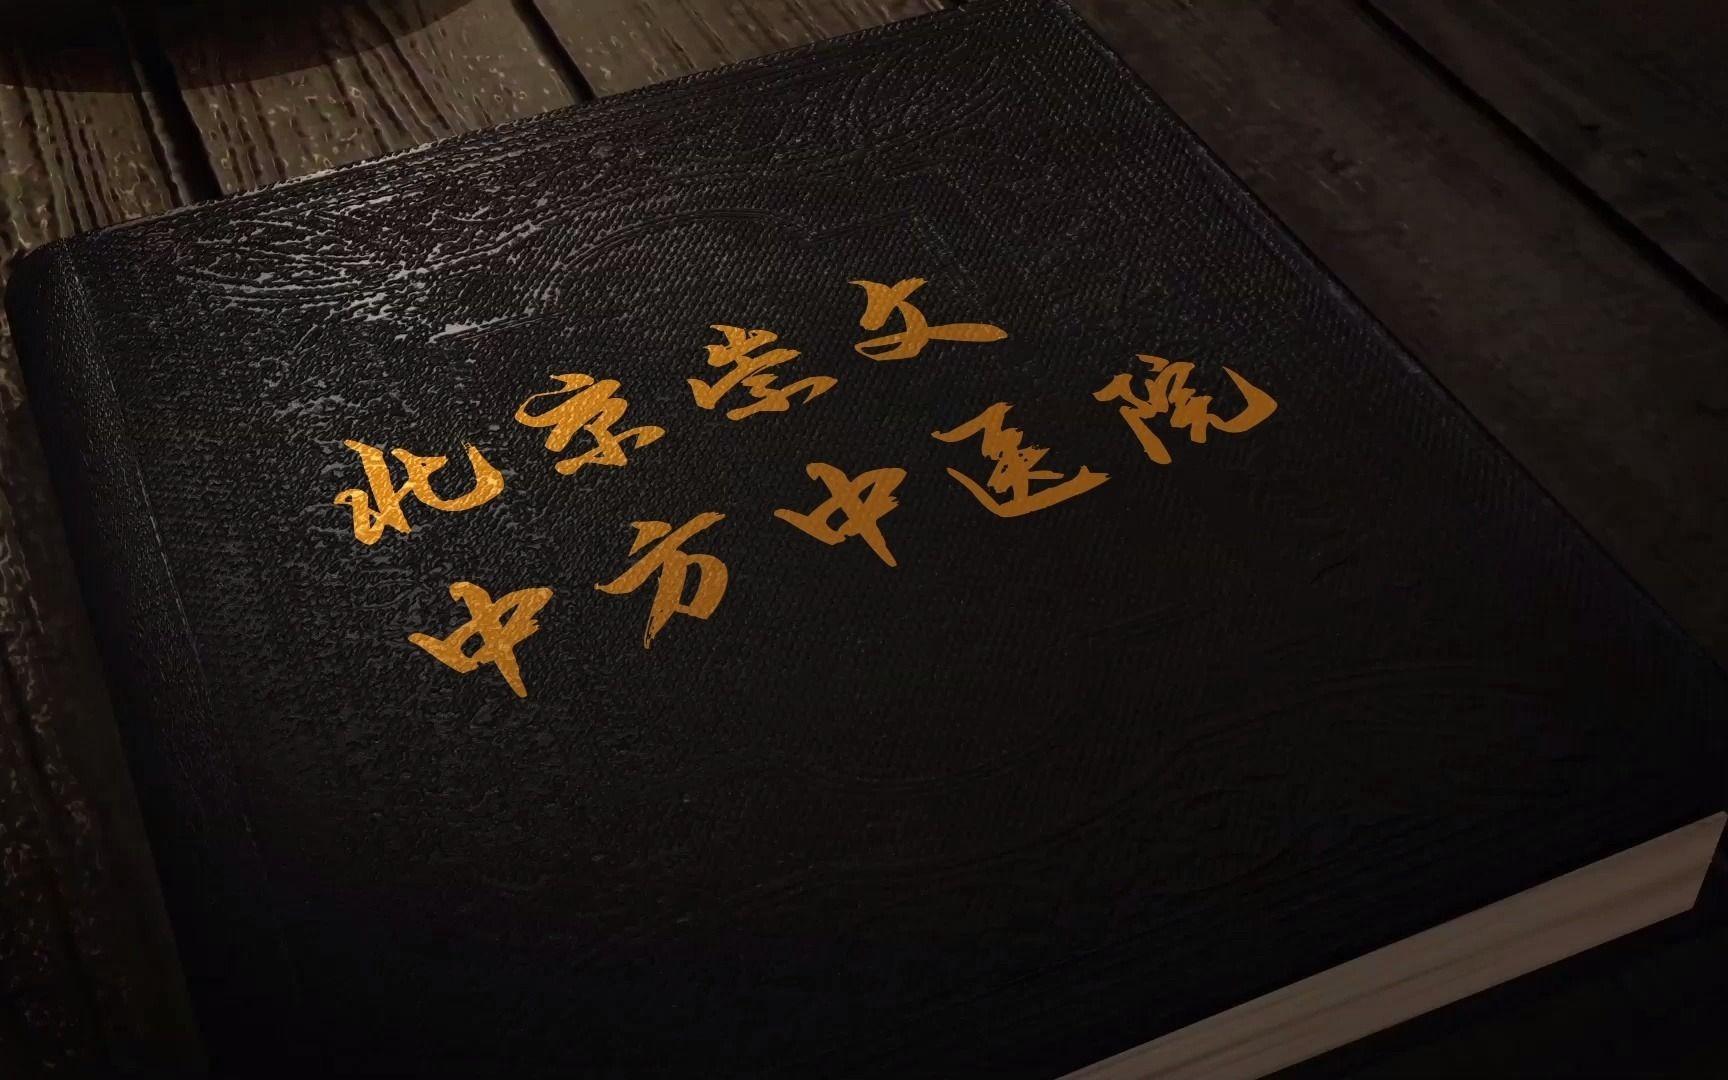 北京崇文
中方中医院